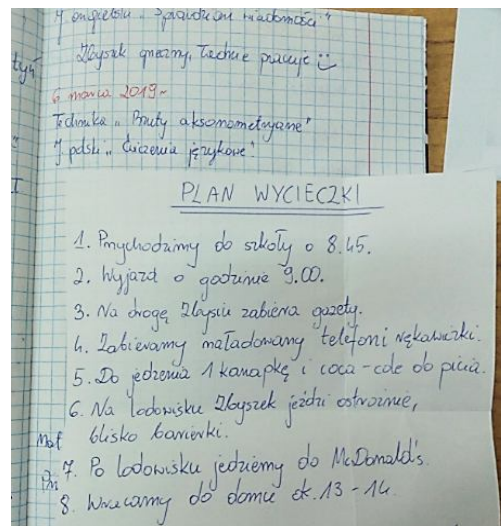 J. angielski „Sprawdzian wiadomości”
Zbyszek grzeczny, ładnie pracuje
6 marca 2019r
Technika „Rzuty aksonometryczne”
J. polski „Ćwiczenia językowe”.
PLAN WYCIECZKI
1. Przychodzimy do szkoły o 8.45.
2. Wyjazd o godzinie 9.00.
3. Na drogę Zbysiu zabiera gazety.
4. Zabieramy naładowany telefon i rękawiczki.
5. Do jedzenia 1 kanapkę i coca-cole do picia.
6. Na lodowisku Zbyszek jeździ ostrożnie,
blisko barierki.
Mat
7. Po lodowisku jedziemy do McDonald's.
8. Wracamy do domu ok. 13-14.